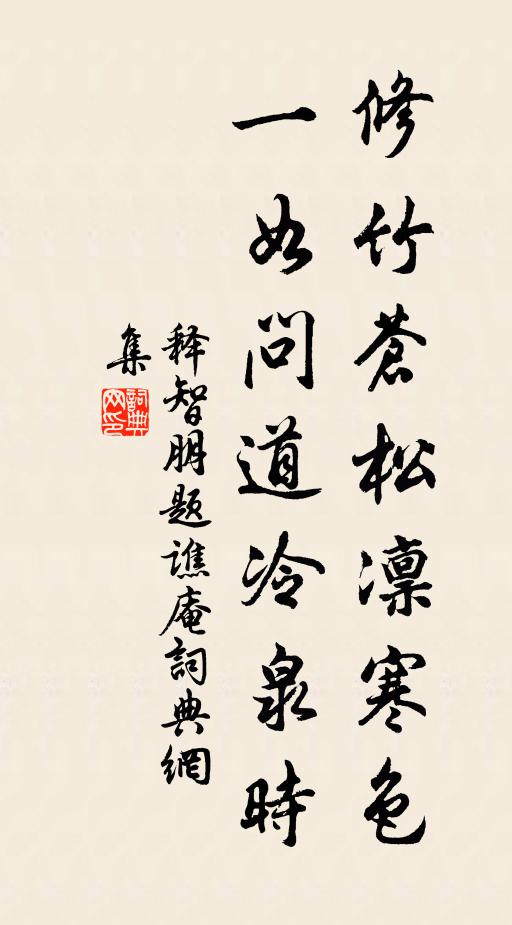 修竹蒼松凛寒色
一如問道冷泉時
释智朋题譙庵詞典網
集
詞典
网印